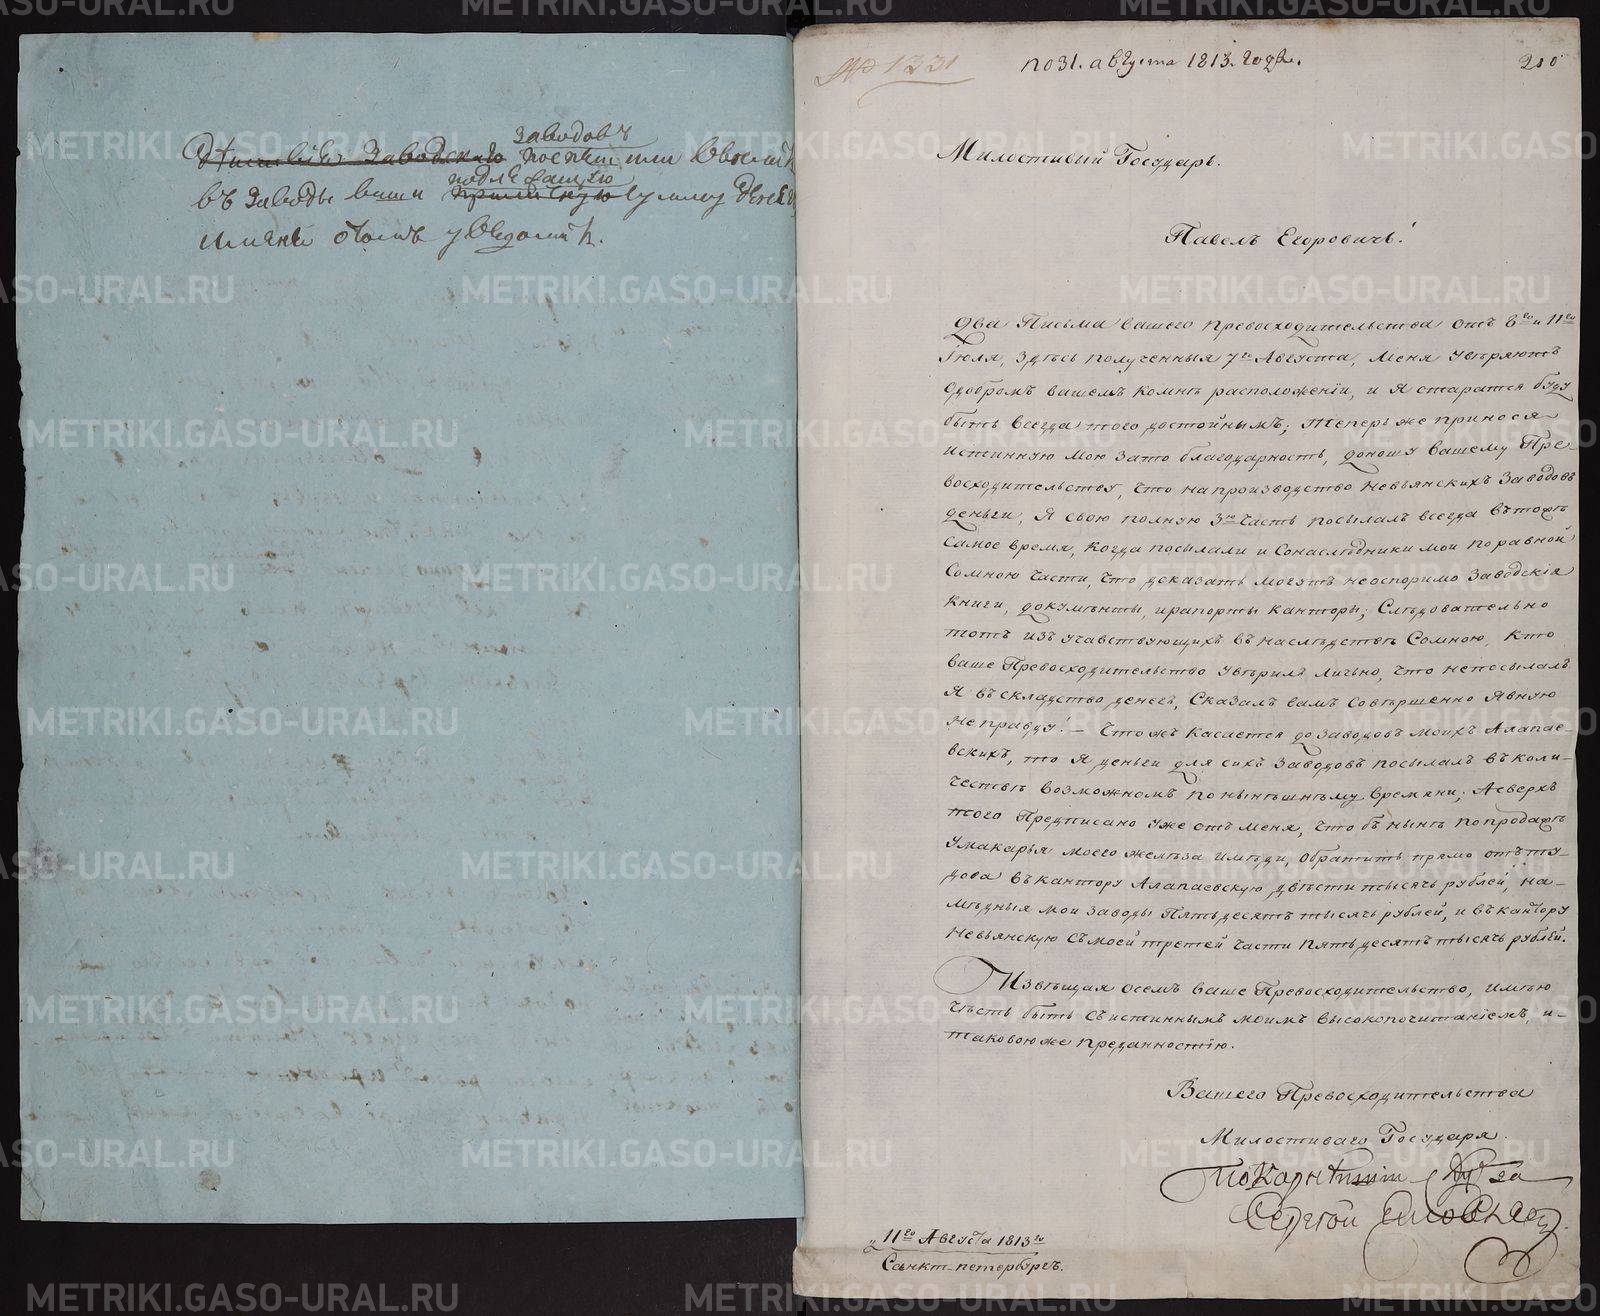 заводовъ
заводскаго
подлежащую
въ заводы ваши сумму денегъ
и меня о томъ уведомить.
№ 1331
по 31. августа 1813. года.
210
Милостивый Государь.
Павелъ Егоровичь!
Два Письма вашего превосходительства отъ 8го и 11го
Іюля, здѣсь полученныя 7го Августа, меня увѣряютъ
одобромъ вашемъ комнѣ расположеніи, и я старатся буду
быть всегда того достойнымъ; теперь же принося
истинную мою зато благодарность, доношу вашему Пре-
восходительству, что на производство Невьянскихъ Заводовъ
деньги, Я свою полную 3ю часть посылалъ всегда вътожъ
самое время, когда посылали и Сонаслѣдники мои поравной
Сомною части, что доказать могутъ неоспоримо Заводскія
книги, документы, ирапорты канторы; Слѣдовательно
тотъ изъ учавствующихъ въ наслѣдствѣ Сомною, кто
ваше Превосходительство увѣрилъ лично, что непосылалъ
Я въскладство денегъ, Сказалъ вамъ совѣршенно явную
неправду! — Чтожъ касается до заводовъ моихъ Алапае-
вскихъ, то Я деньги для сихъ Заводовъ посылалъ въколи-
чествѣ возможномъ понынѣшнѣму времяни; Асверхъ
того Предписано уже отъ меня, чтобъ нынѣ попродажѣ
Умакарья моего желѣза имѣди, обратить прямо оттту-
дова въкантору Алапаевскую двѣсти тысячь рублей, на-
мѣдныя мои заводы Пятьдесятъ тысячь рублей, и въ кантору
Невьянскую съмоей третей части пятьдесятъ тысячь рублей.
Извѣщая осемъ ваше Превосходительство, имѣю
Чѣсть быть съистиннымъ моимъ высокопочитаніемъ, и-
таковою же преданностію.
Вашего Превосходительства
Милостиваго Государя
Покорнѣйшій Слуга
Сергѣй Яковлевъ
11го Августа 1813го
Санктъ-петербургъ.